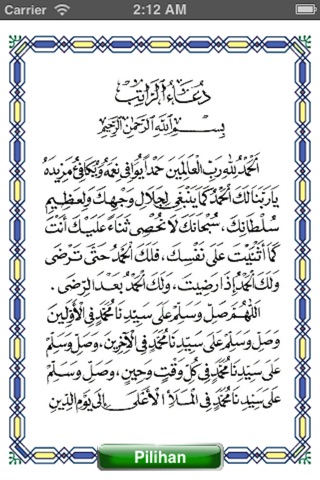 Carrier 2:12 AM
دُعَاءُ الرَّاتِبِ
بِسْمِ اللهِ الرَّحْمٰنِ الرَّحِيْمِ
اَلْحَمْدُ لِلّٰهِ رَبِّ الْعَالَمِيْنَ حَمْدًا يُوَافِي نِعَمَهُ وَيُكَافِئُ مَزِيْدَهُ
يَارَبَّنَا لَكَ الْحَمْدُ كَمَا يَنْبَغِي لِجَلَالِ وَجْهِكَ وَلِعَظِيْمِ
سُلْطَانِكَ، سُبْحَانَكَ لَا نُحْصِي ثَنَاءً عَلَيْكَ أَنْتَ
كَمَا أَثْنَيْتَ عَلَى نَفْسِكَ، فَلَكَ الْحَمْدُ حَتَّى تَرْضَى
وَلَكَ الْحَمْدُ إِذَا رَضِيْتَ، وَلَكَ الْحَمْدُ بَعْدَ الرِّضَى.
اَللّٰهُمَّ صَلِّ وَسَلِّمْ عَلَى سَيِّدِنَا مُحَمَّدٍ فِي الْأَوَّلِيْنَ
وَصَلِّ وَسَلِّمْ عَلَى سَيِّدِنَا مُحَمَّدٍ فِي الْآخِرِيْنَ، وَصَلِّ وَسَلِّمْ
عَلَى سَيِّدِنَا مُحَمَّدٍ فِي كُلِّ وَقْتٍ وَحِيْنٍ، وَصَلِّ وَسَلِّمْ
عَلَى سَيِّدِنَا مُحَمَّدٍ فِي الْمَلَإِ الْأَعْلَى إِلَى يَوْمِ الدِّيْنِ
Pilihan